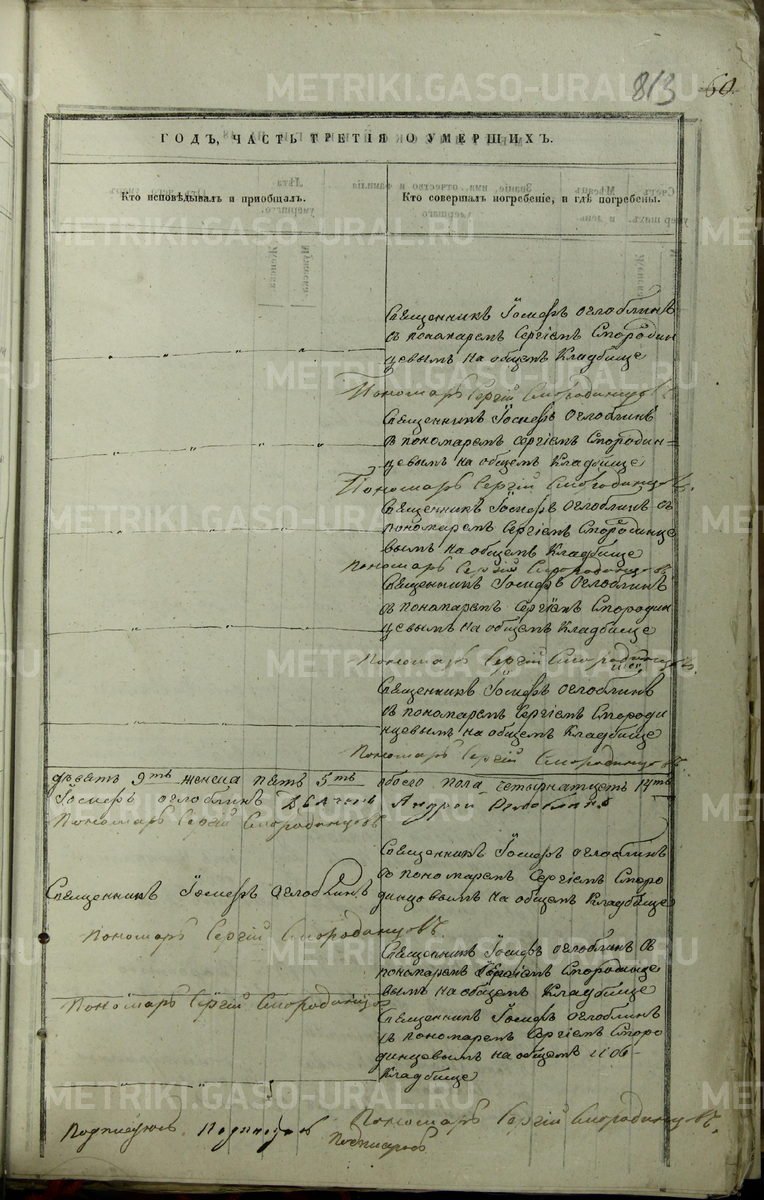 813 60
ГОДЪ, ЧАСТЬ ТРЕТІЯ О УМЕРШИХЪ.
Кто исповѣдывалъ и пріобщалъ.
Кто совершалъ погребеніе, и гдѣ погребены.
Священникъ Іосифъ Оглоблинъ
съ пономаремъ Сергіемъ Смородин
цевымъ на общемъ кладбище
Пономарь Сергій Смородинцовъ
Священникъ Іосифъ Оглоблинъ
съ пономаремъ Сергіемъ Смородин=
цевымъ на общемъ кладбище
Пономарь Сергій Смородинцовъ.
Священникъ Іосифъ Оглоблинъ съ
пономаремъ Сергіемъ Смородинце
вымъ на общемъ кладбище
Пономарь Сергій Смородинцовъ
Священникъ Іосифъ Оглоблинъ
съ пономаремъ Сергіемъ Смородин
цевымъ на общемъ кладбище
Пономарь Сергій Смородинцовъ.
Священникъ Іосифъ Оглоблинъ
съ пономаремъ Сергіемъ Смороди
нцевымъ на общемъ кладбище
Пономарь Сергій Смородинцовъ.
девять 9ть женска пять 5ть обоего пола четырнатцеть 14ть
Іосифъ Оглоблинъ Андрей
Пономарь Сергій Смородинцовъ
Священникъ Іосифъ Оглоблинъ
Священникъ Іосифъ Оглоблинъ
со пономаремъ Сергіемъ Сморо
динцовымъ на общемъ кладбище
Пономарь Сергій Смородинцовъ.
Священникъ Іосифъ Оглоблинъ съ
пономаремъ Сергіемъ Смородинце
вымъ на общемъ кладбище
Пономарь Сергій Смородинцов
Священникъ Іосифъ Оглоблинъ
съ пономаремъ Сергіемъ Сморо
динцевымъ на общемъ
кладбище
Пономарь Сергій Смородинцовъ.
METRIKI.GASO-URAL.RU